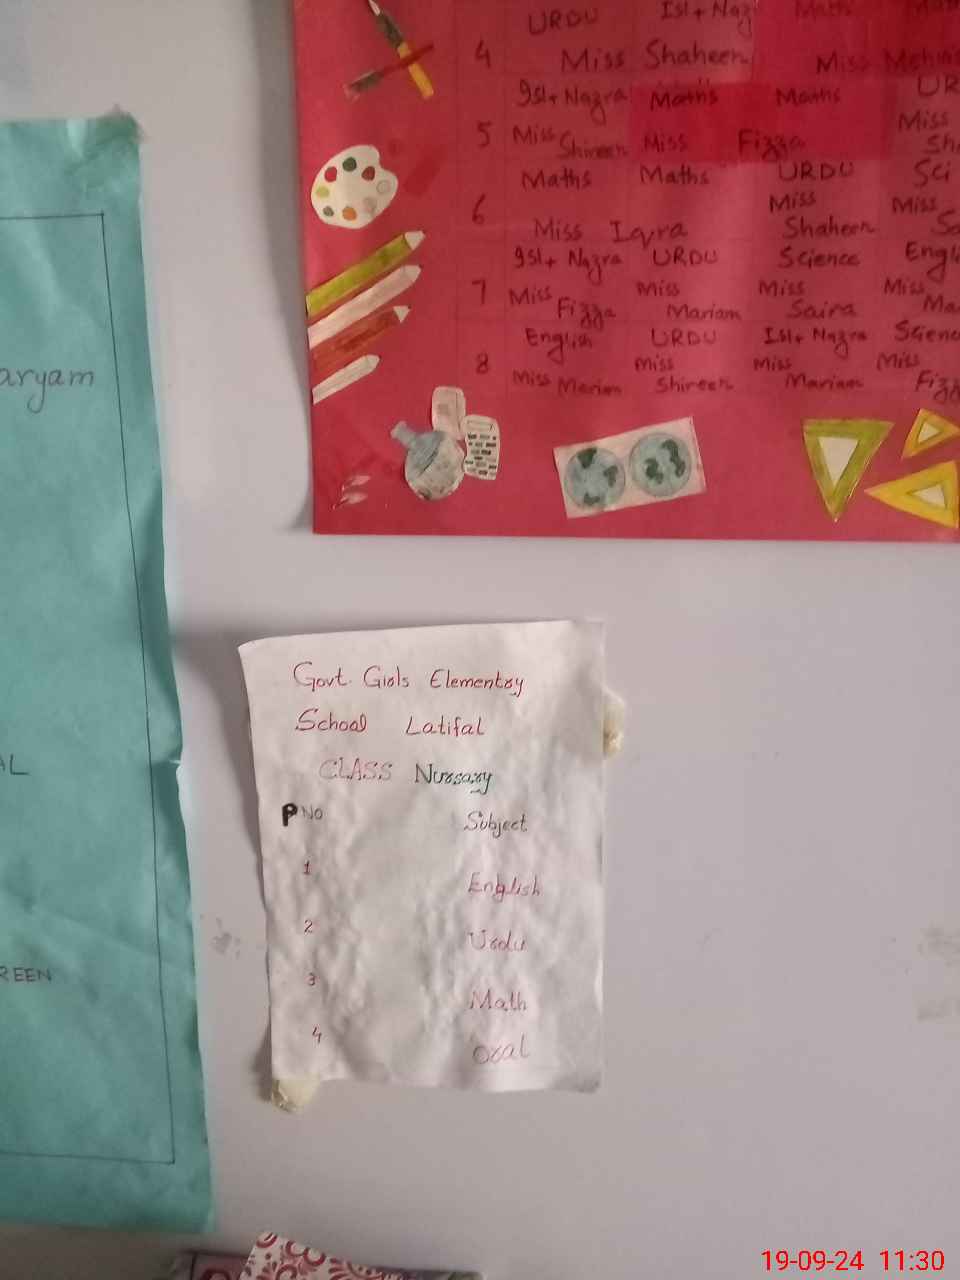 URDU Isl + Naz Math
4 Miss Shaheen Miss Mehwi
Isl + Nazra Maths Maths UR
5 Miss Shireen Miss Fizza Miss Sh
Maths Maths URDU Sci
6 Miss Iqra Miss Shaheen Miss Sa
Isl + Nazra URDU Science Engli
7 Miss Fizza Miss Mariam Miss Saira Miss Ma
English URDU Isl + Nazra Scienc
8 Miss Mariam Miss Shireen Miss Mariam Miss Fizz
aryam
AL
REEN
Govt. Girls Elementry
School Latifal
CLASS Nursary
P NO Subject
1 English
2 Urdu
3 Math
4 Oral
19-09-24 11:30